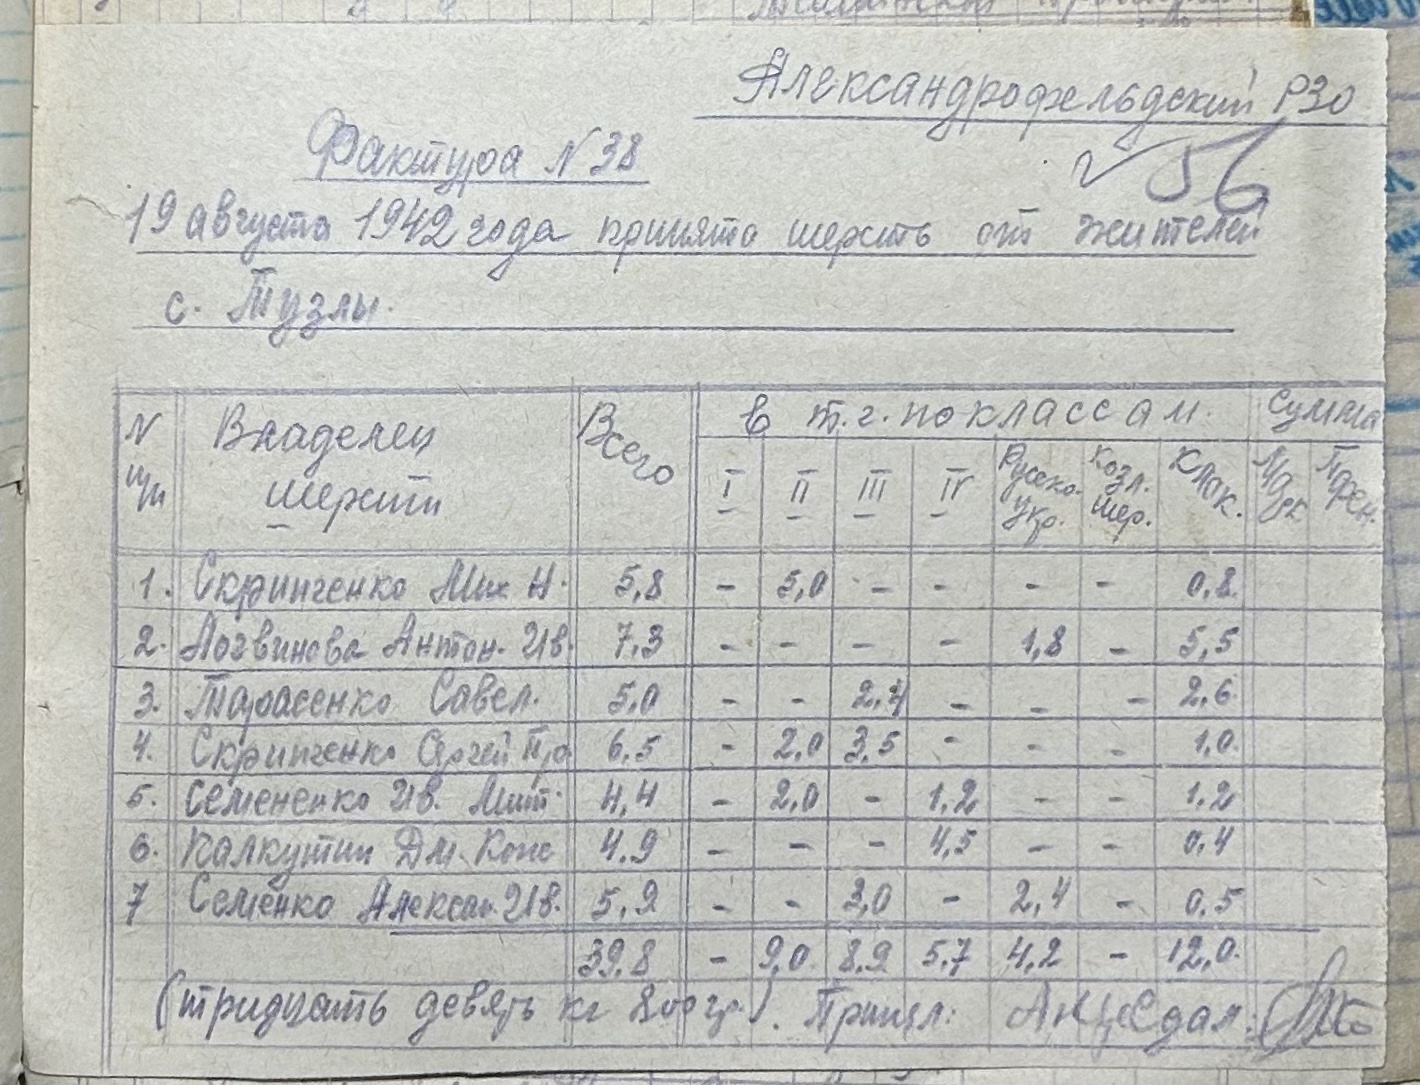 Александрофельдский РЗО
Фактура N 38
√ 56
19 августа 1942 года принято шерсть от жителей
с. Тузлы.
N п/п Владелец шерсти Всего в т.г. по классам. Сумма
I II III IV Русско-укр. Козл. шер. Клок. Марк Пфен.
1. Скрипченко Мих Н. 5,8 - 5,0 - - - - 0,8
2. Логвинова Антон. Ив. 7,3 - - - - 1,8 - 5,5
3. Тарасенко Савел. 5,0 - - 2,4 - - - 2,6
4. Скрипченко Сергей Пр 6,5 - 2,0 3,5 - - - 1,0
5. Семененко Ив. Мит. 4,4 - 2,0 - 1,2 - - 1,2
6. Калкутин Дм. Конс 4,9 - - - 4,5 - - 0,4
7 Семенко Алексан. Ив. 5,9 - - 3,0 - 2,4 - 0,5
39,8 - 9,0 8,9 5,7 4,2 - 12,0
(тридцать девять кг 800 гр.). Принял: Сдал: